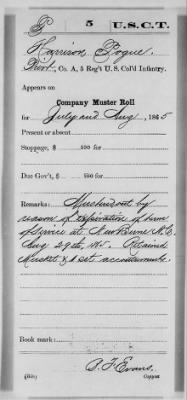 P 5 U.S.C.T.
Harrison Pogue
Priv., Co. A, 5 Reg't U. S. Col'd Infantry.
Appears on
Company Muster Roll
for July and Aug, 1865
Present or absent
Stoppage, $ 100 for
Due Gov't, $ 100 for
Remarks: Mustered out by
reason of expiration of term
of service at New Berne N.C.
Aug 29th, 65. Retained
Musket & 1 set accoutrements.
Book mark:
(858)
Copyist.